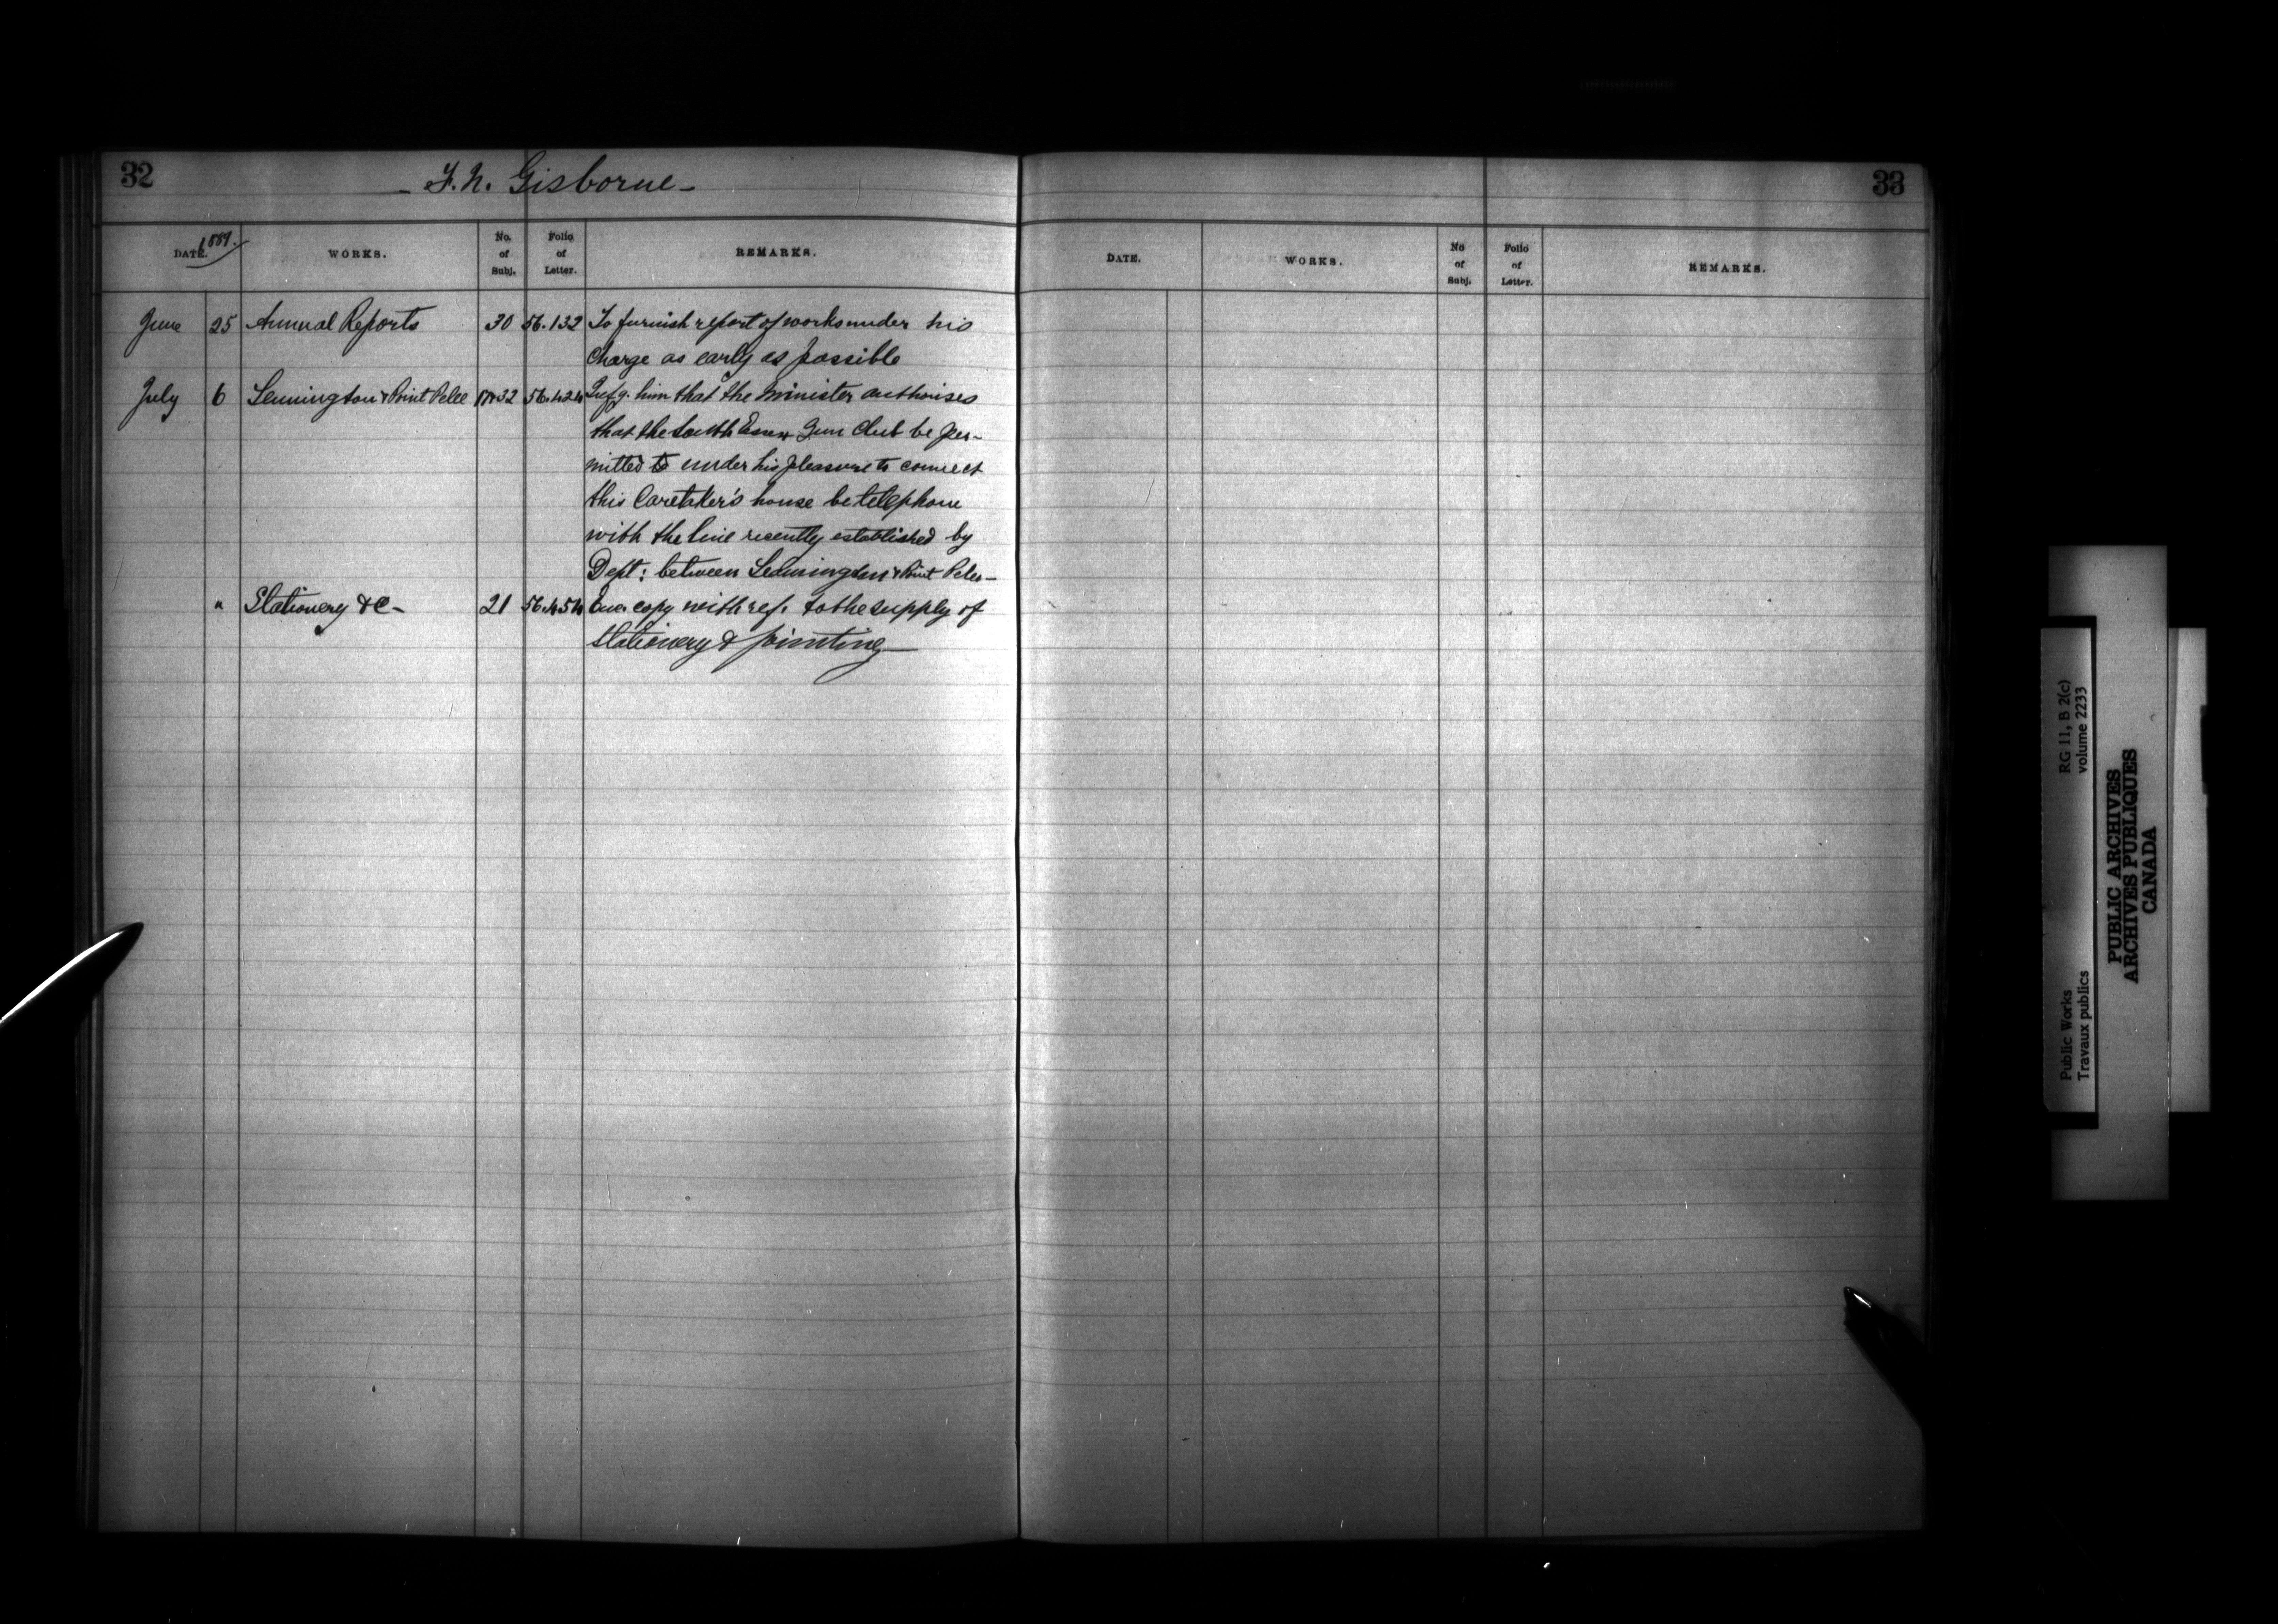 32
- F. N. Gisborne -
DATE. 1889.
WORKS.
No. of Subj.
Folio of Letter.
REMARKS.
June 25 Annual Reports 30 56.132 To furnish report of works under his
Charge as early as possible
July 6 Leamington & Point Pelee 32 56.424 Infg. him that the Minister authorises
that the South Essex Gun Club be per-
mitted to under his pleasure to connect
this Caretaker's house be telephone
with the line recently established by
Dept: between Leamington & Point Pelee -
" Stationery &c - 21 56.454 Enc. copy with ref. to the supply of
Stationery & printing -
33
DATE.
WORKS.
No of Subj.
Folio of Letter.
REMARKS.
RG 11, B 2(c)
volume 2233
Public Works
Travaux publics
PUBLIC ARCHIVES
ARCHIVES PUBLIQUES
CANADA